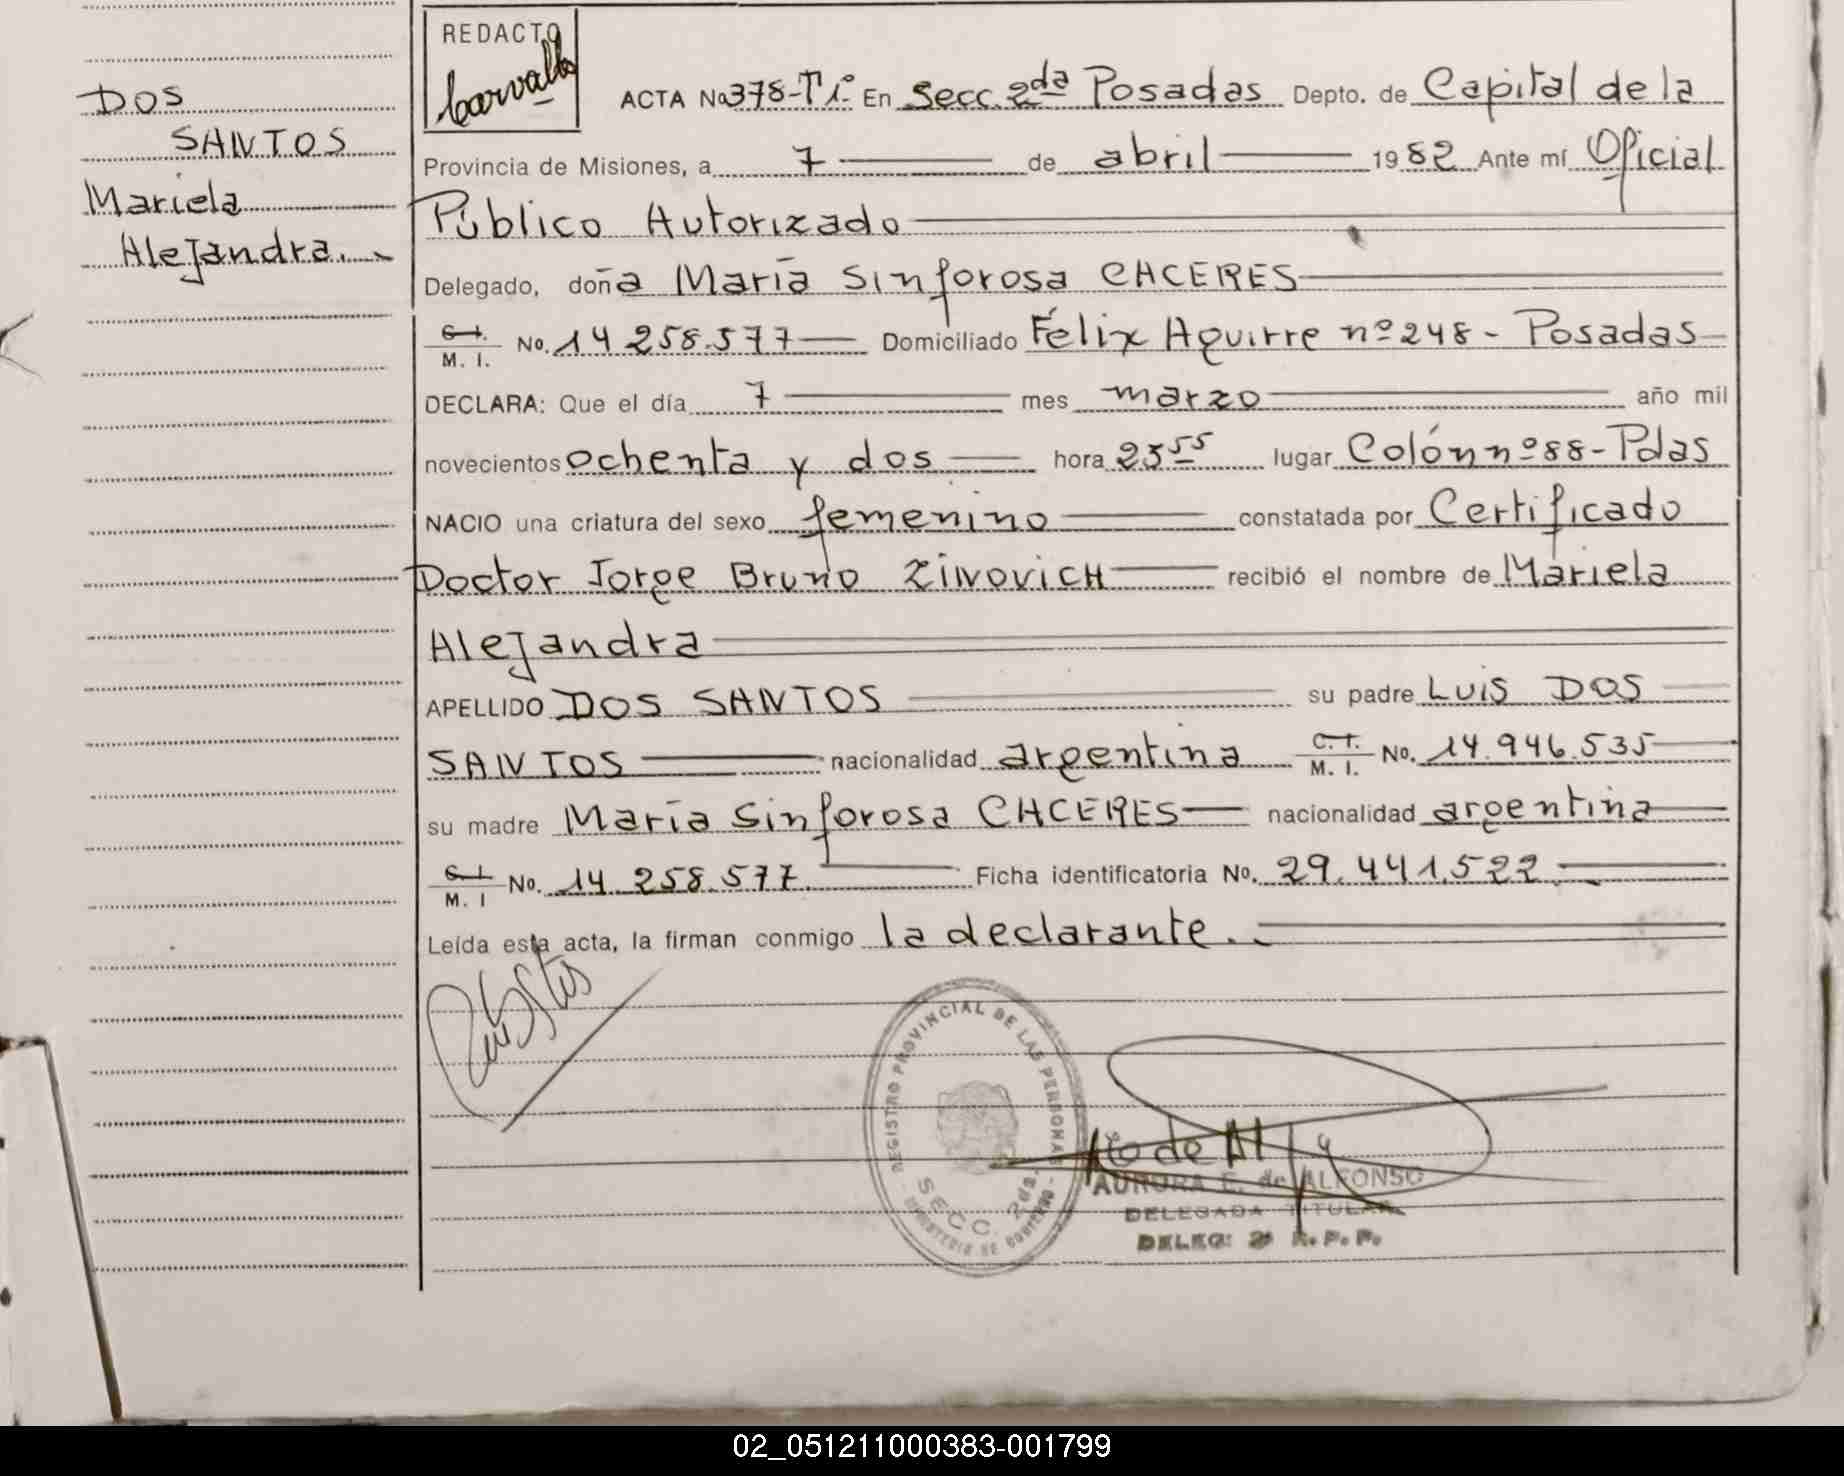 DOS
SANTOS
Mariela
Alejandra.
REDACTO
Carvallo
ACTA No 378-Tº i. En Secc. 2da Posadas Depto. de Capital de la
Provincia de Misiones, a 7 de abril 1982 Ante mí Oficial
Público Autorizado
Delegado, doña María Sinforosa CACERES
C.I.
M. I. No. 14 258.577 Domiciliado Félix Aguirre nº 248 - Posadas
DECLARA: Que el día 7 mes marzo año mil
novecientos ochenta y dos hora 23 55 lugar Colón nº 88 - Pdas
NACIO una criatura del sexo femenino constatada por Certificado
Doctor Jorge Bruno ZINOVICH recibió el nombre de Mariela
Alejandra
APELLIDO DOS SANTOS su padre LUIS DOS
SANTOS nacionalidad argentina C.I. M. I. No. 14.946.535
su madre María Sinforosa CACERES nacionalidad argentina
C.I. M. I No. 14 258.577. Ficha identificatoria No. 29.441.522.
Leída esta acta, la firman conmigo la declarante.
REGISTRO PROVINCIAL DE LAS PERSONAS
SECC. 2da.
MINISTERIO DE GOBIERNO
AURORA E. de ALFONSO
DELEGADA TITULAR
DELEG: 2ª R. P. P.
02_051211000383-001799